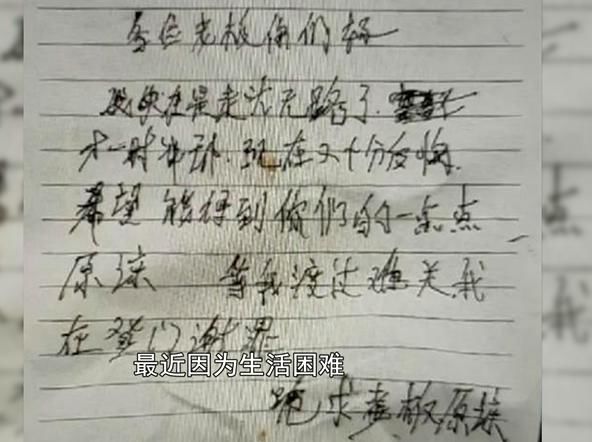 各位老板你们好
我实在是走投无路了.
才一时冲动.现在又十分后悔.
希望能得到你们的一点点
原谅 等我渡过难关我
在登门谢罪
最近因为生活困难
跪求老板原谅